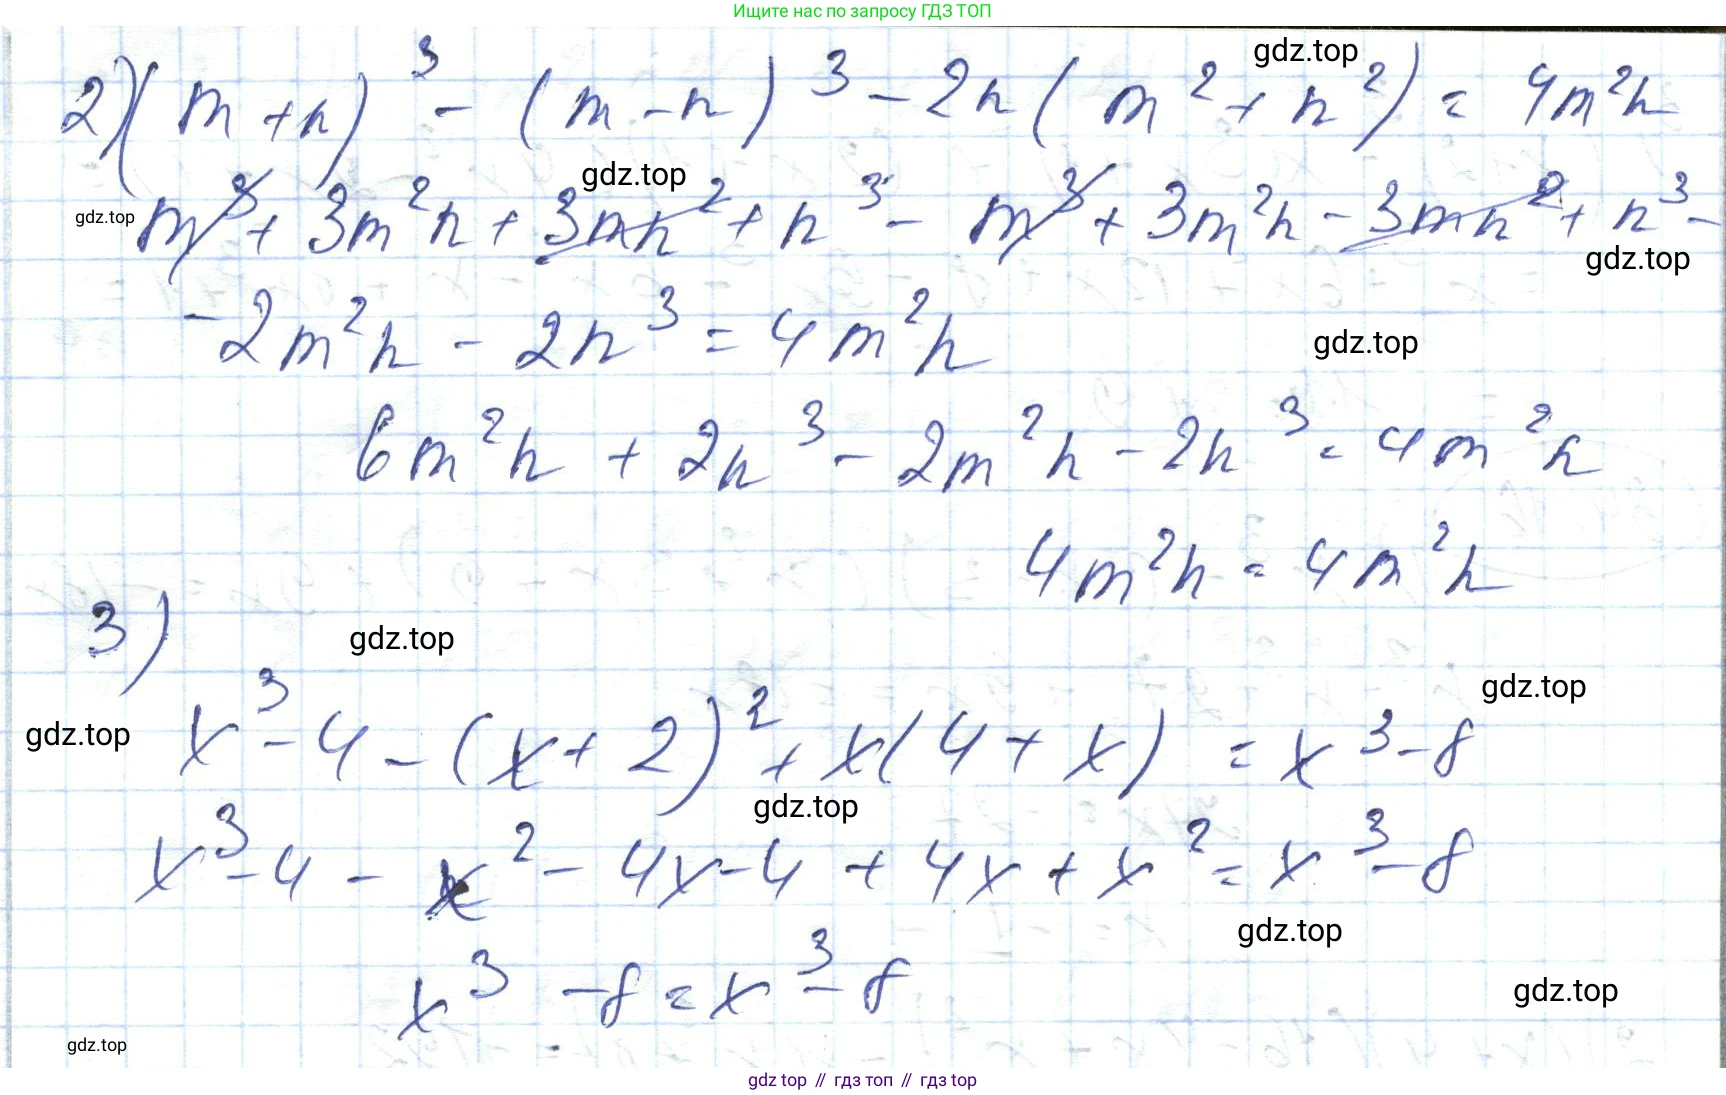 Ищите нас по запросу ГДЗ ТОП
gdz.top
2) (m+n)³ - (m-n)³ - 2n(m² + n²) = 4m²n
gdz.top
gdz.top
m³ + 3m²n + 3mn² + n³ - m³ + 3m²n - 3mn² + n³ -
gdz.top
- 2m²n - 2n³ = 4m²n
gdz.top
6m²n + 2n³ - 2m²n - 2n³ = 4m²n
4m²n = 4m²n
3)
gdz.top
gdz.top
gdz.top
x³ - 4 - (x + 2)² + x(4 + x) = x³ - 8
gdz.top
x³ - 4 - x² - 4x - 4 + 4x + x² = x³ - 8
gdz.top
x³ - 8 = x³ - 8
gdz.top
gdz.top
gdz top // гдз топ // гдз top